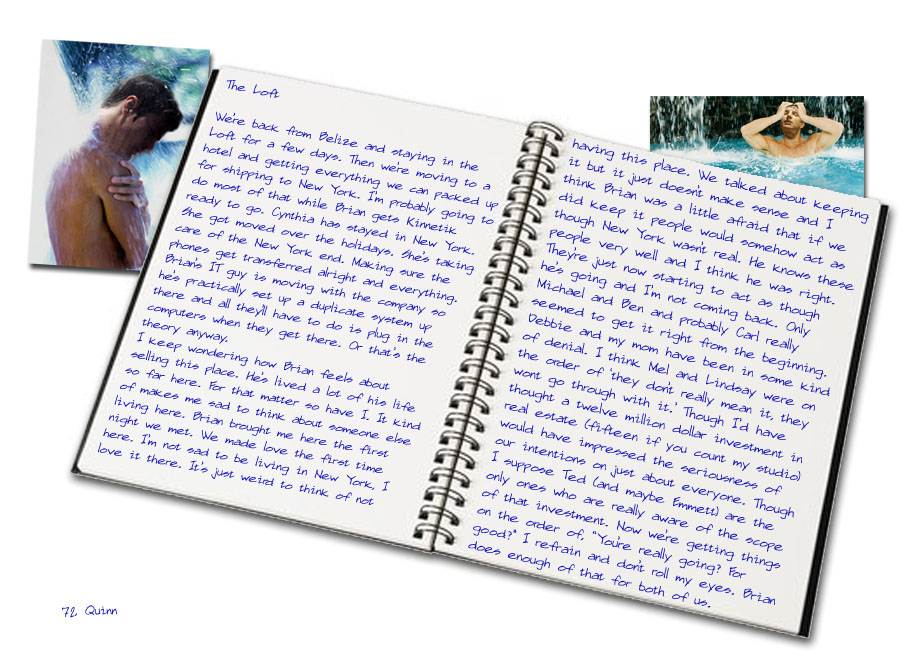 The Loft
We're back from Belize and staying in the
Loft for a few days. Then we're moving to a
hotel and getting everything we can packed up
for shipping to New York. I'm probably going to
do most of that while Brian gets Kinnetik
ready to go. Cynthia has stayed in New York.
She got moved over the holidays. She's taking
care of the New York end. Making sure the
phones get transferred alright and everything.
Brian's IT guy is moving with the company so
he's practically set up a duplicate system up
there and all they'll have to do is plug in the
computers when they get there. Or that's the
theory anyway.
I keep wondering how Brian feels about
selling this place. He's lived a lot of his life
so far here. For that matter so have I. It kind
of makes me sad to think about someone else
living here. Brian brought me here the first
night we met. We made love the first time
here. I'm not sad to be living in New York, I
love it there. It's just weird to think of not
having this place. We talked about keeping
it but it just doesn't make sense and I
think Brian was a little afraid that if we
did keep it people would somehow act as
though New York wasn't real. He knows these
people very well and I think he was right.
They're just now starting to act as though
he's going and I'm not coming back. Only
Michael and Ben and probably Carl really
seemed to get it right from the beginning.
Debbie and my mom have been in some kind
of denial. I think Mel and Lindsay were on
the order of 'they don't really mean it, they
wont go through with it.' Though I'd have
thought a twelve million dollar investment in
real estate (fifteen if you count my studio)
would have impressed the seriousness of
our intentions on just about everyone. Though
I suppose Ted (and maybe Emmett) are the
only ones who are really aware of the scope
of that investment. Now we're getting things
on the order of, "You're really going? For
good?" I refrain and don't roll my eyes. Brian
does enough of that for both of us.
72 Quinn